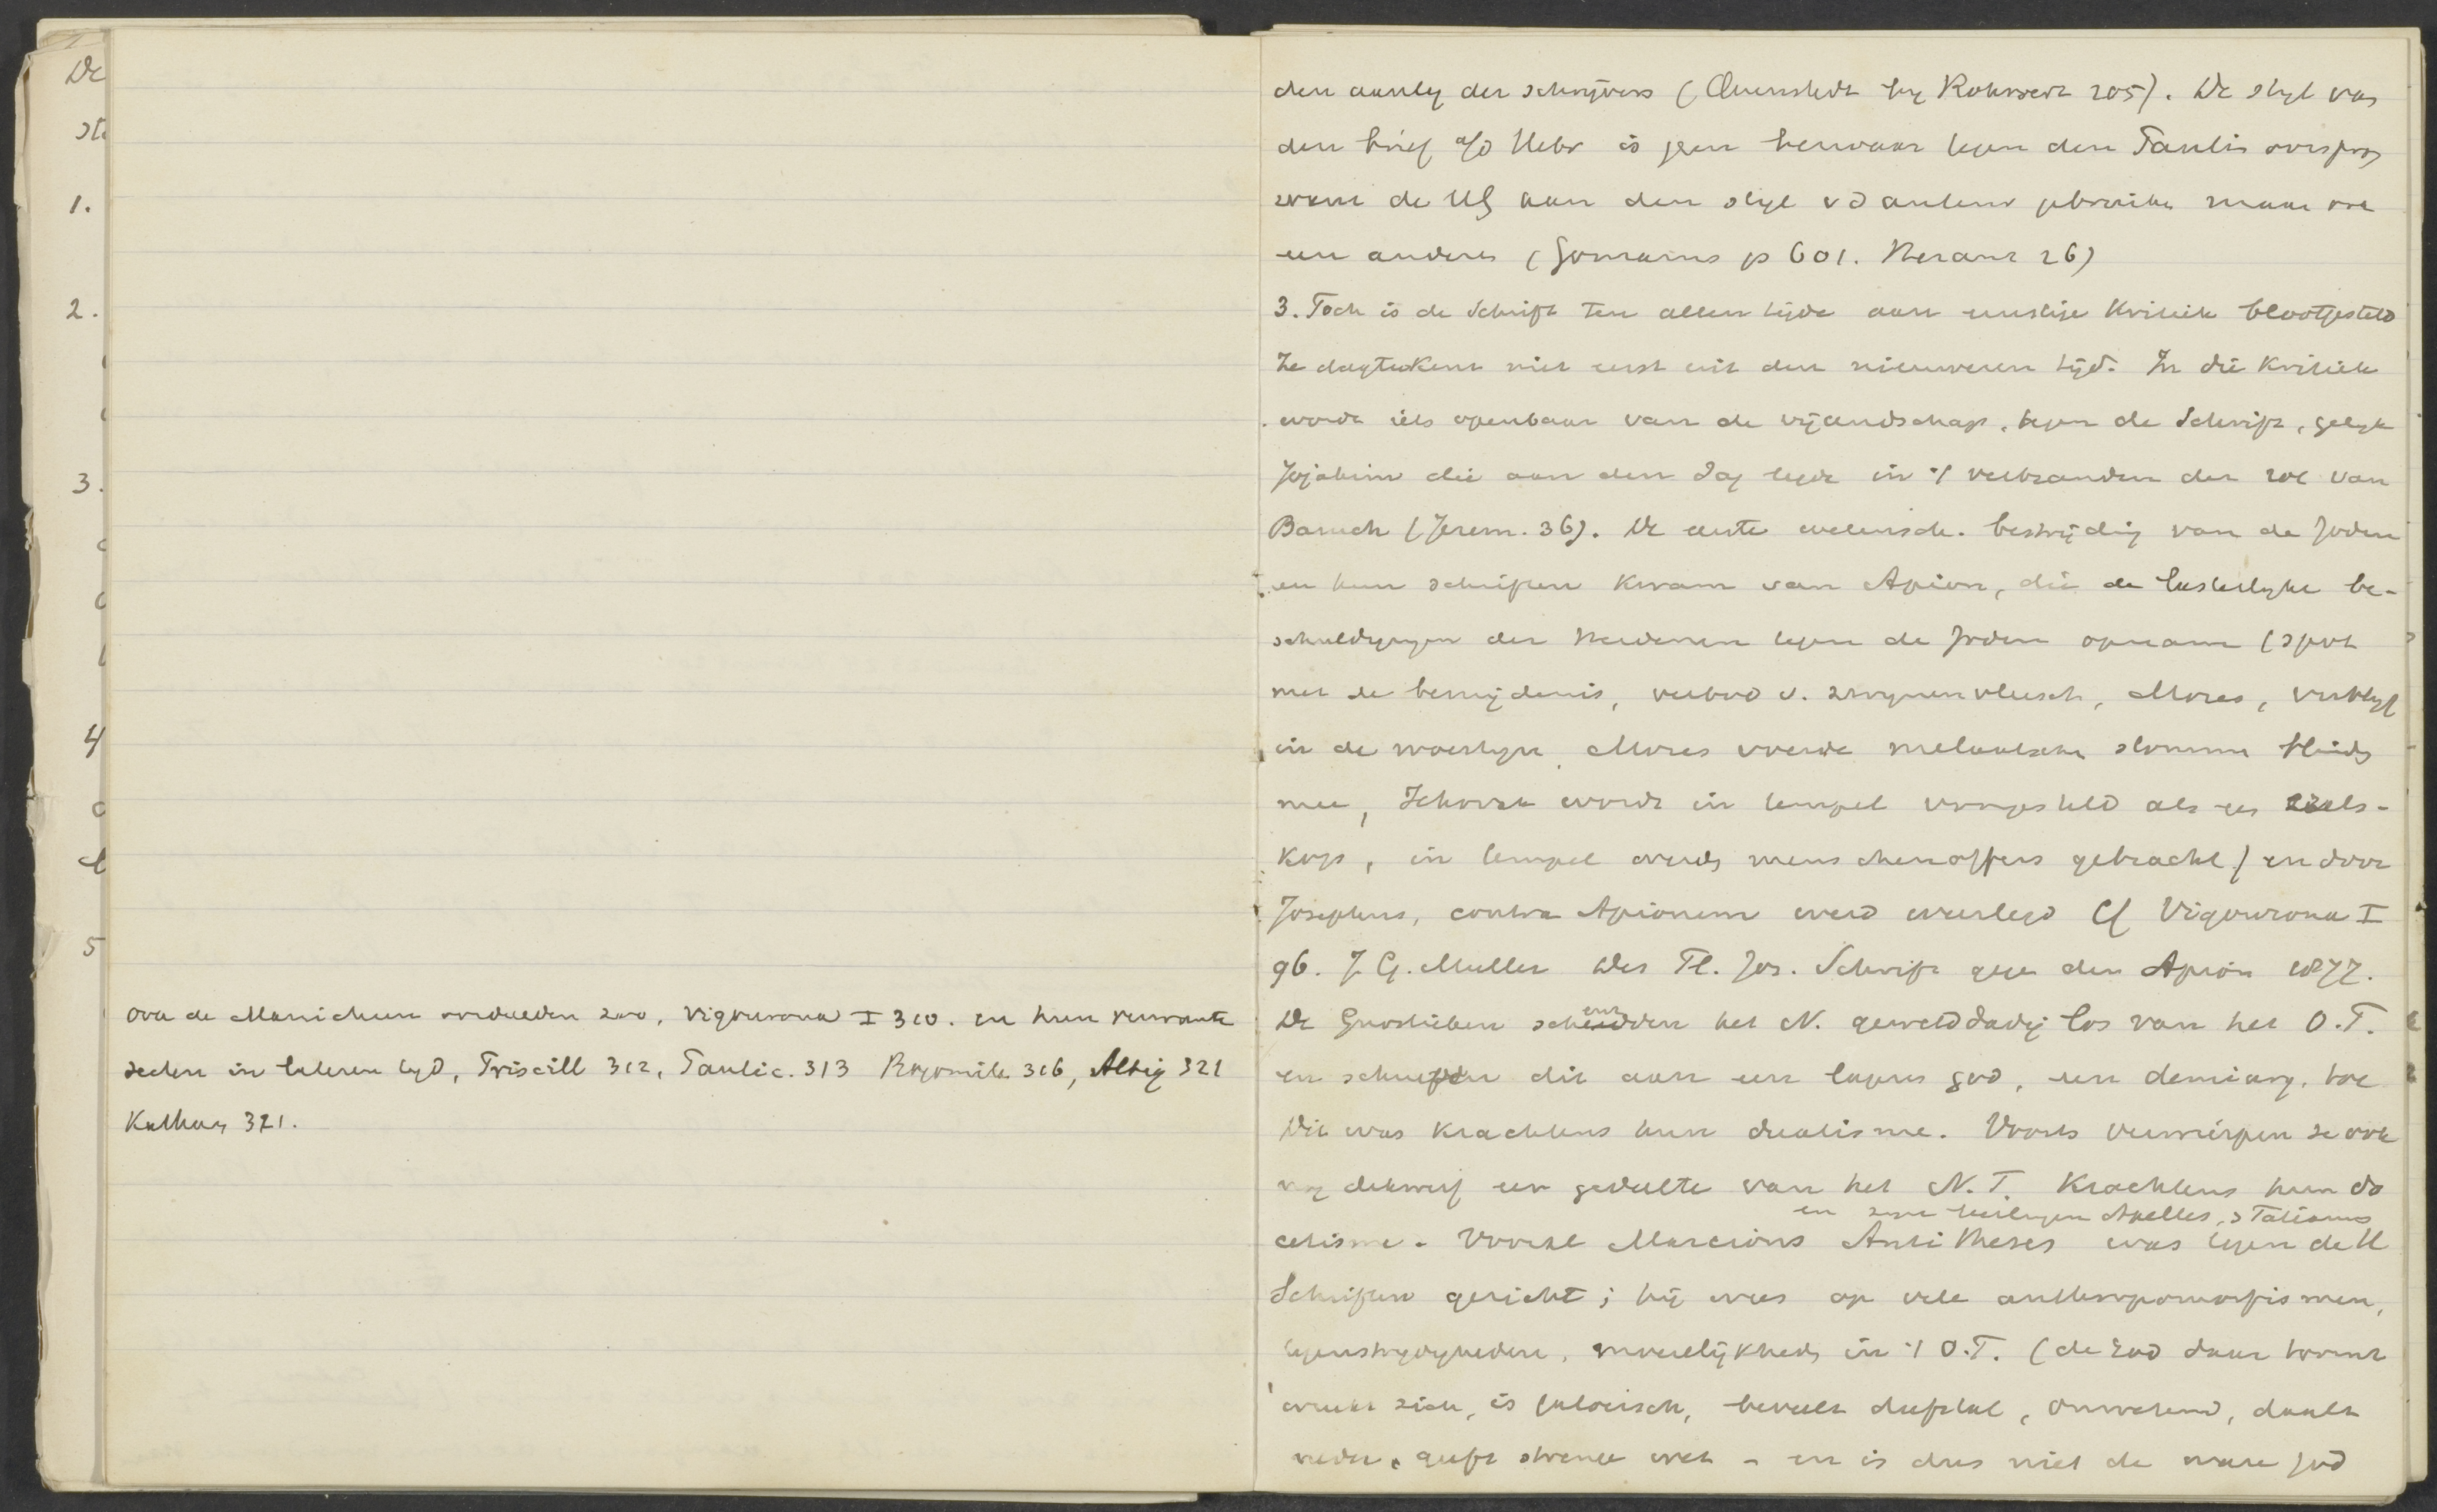 De
st
1.
2.
3.
4
5
ook de Manicheen oordeelden zoo, Vigouroux I 310. en hun verwante
secten in lateren tyd, Priscill 312, Paulic. 313 Bogomile 316, Albig 321
Kathar 321.
den aanleg der schrijvers (Quenstedt by Rohnert 205). De styl van
den brief a/d Hebr is geen bezwaar tegen den Paulin oorsprong
want de HG kan den styl vd auteur gebruiken maar ook
een anderen (Gomarus p 601. 26)
3. Toch is de Schrift ten allen tijde aan ernstige kritiek blootgesteld
Ze dagteekent niet eerst uit den nieuweren tijd. In die kritiek
wordt iets openbaar van de vijandschap, tegen de Schrift, gelyk
Jojakim die aan den dag legde in 't verbranden der rol van
Baruch (Jerem. 36). De eerste wetensch. bestrijding van de Joden
en hun schriften kwam van Apion, die de lasterlyke be-
schuldigingen der Heidenen tegen de Joden opnam (spot
met de besnijdenis, verbod v. zwynenvleesch, Mozes, verblyf
in de woestyn, Mozes voerde melaatsche stomme blinde
mee, Jehovah wordt in tempel voorgesteld als een ezels-
kop, in tempel werden menschenoffers gebracht) en door
Josephus, contra Apionem werd weerlegd Cf Vigouroux I
96. J. G. Muller Des Fl. Jos. Schrift gegen den Apion 1877.
De Gnostieken scheurden het N. gewelddadig los van het O.T.
en schreven dit aan een lageren god, een demiurg, toe
Dit was krachtens hun dualisme. Voorts verwierpen ze ook
nog dikwerf een gedeelte van het N.T. krachtens hun do
en zyne leerlingen Apelles, Tatianus
cetisme. Vooral Marcions Antitheses was tegen de H
Schriften gericht; hij wees op vele anthropomorfismen,
tegenstrydigheden, onzedelijkheden in 't O.T. (de God daar toornt
wreekt zich, is jaloersch, beveelt diefstal, onwetend, daalt
neder, geeft strenge wet - en is dus niet de ware God